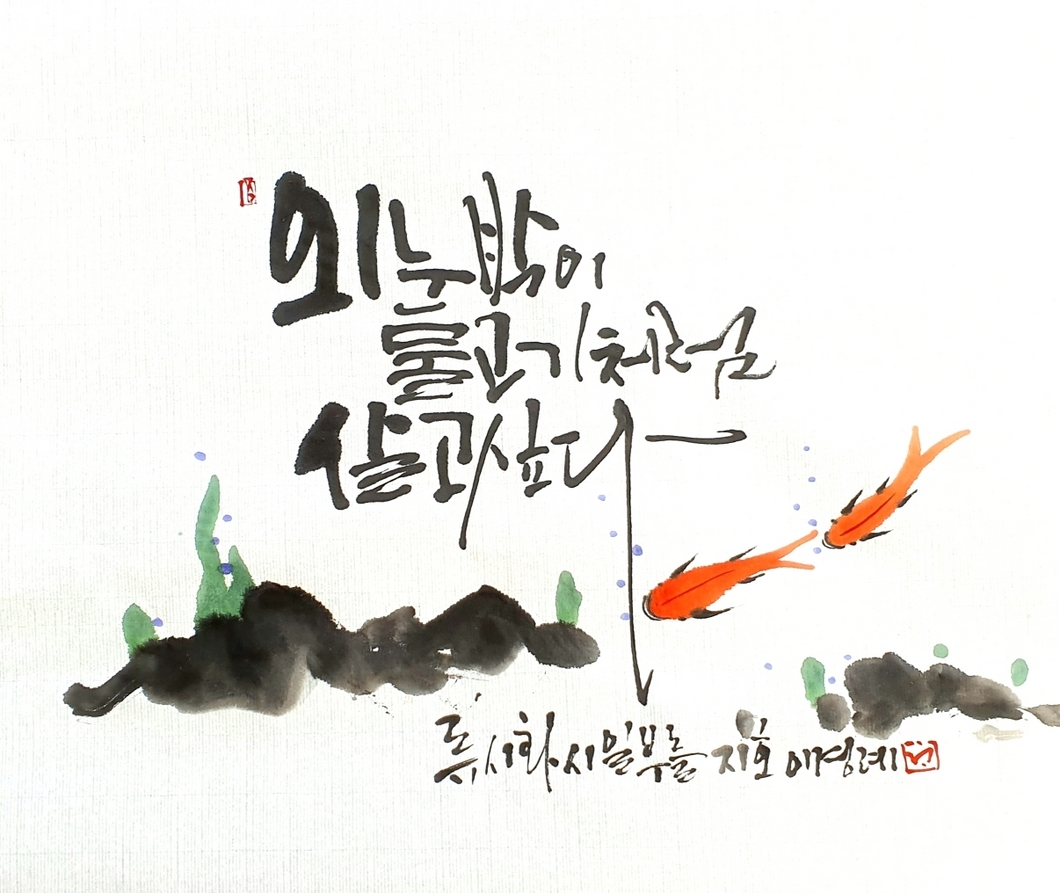 외눈박이
물고기처럼
살고싶다
류시화 시 일부를 지호 이경례